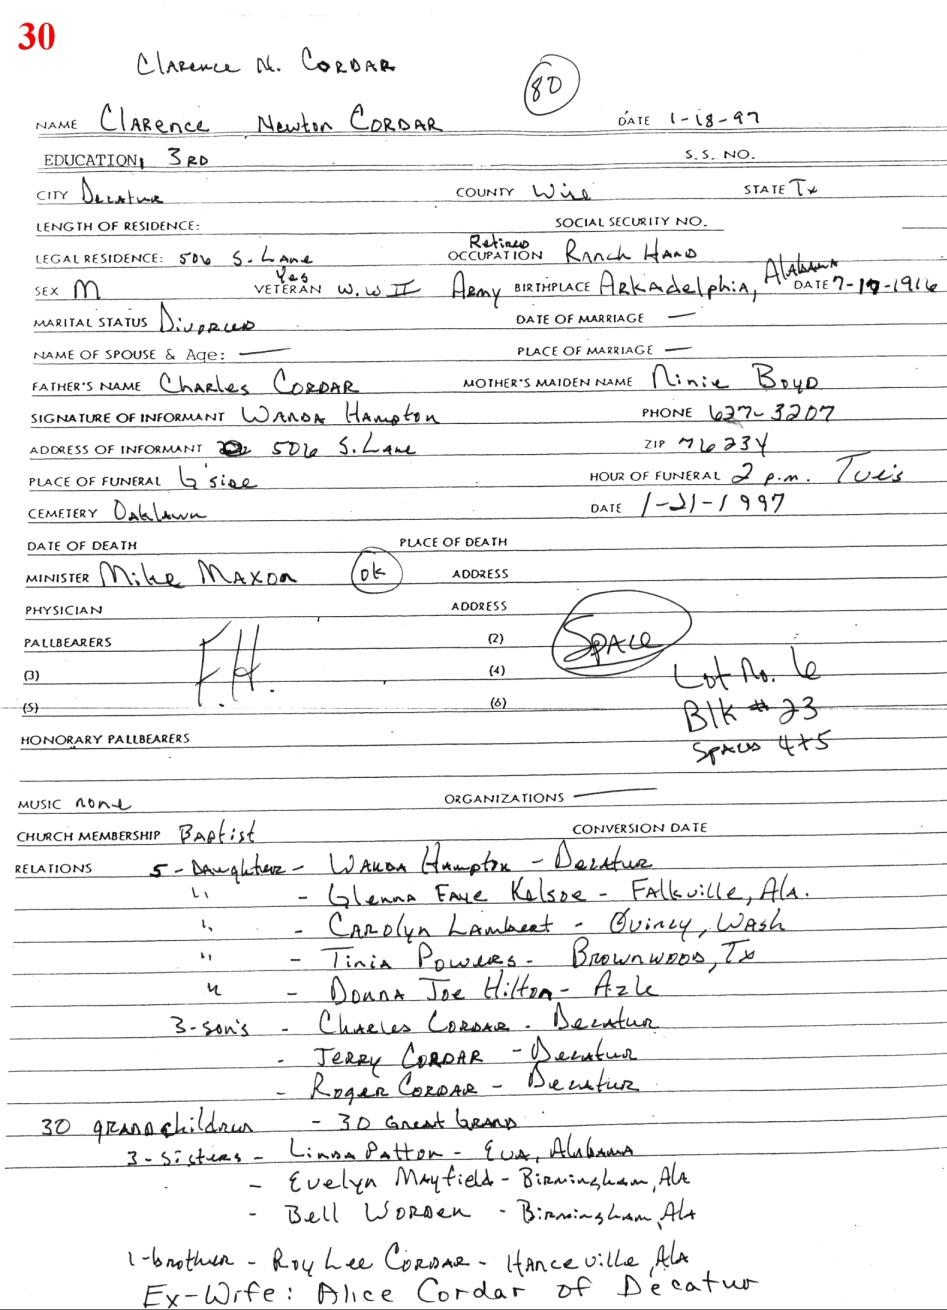 30
Clarence N. CORDAR
80
NAME Clarence Newton CORDAR DATE 1-18-97
EDUCATION: 3RD S.S. NO.
CITY Decatur COUNTY Wise STATE Tx
LENGTH OF RESIDENCE: SOCIAL SECURITY NO.
LEGAL RESIDENCE: 506 S. Lane Retired OCCUPATION Ranch Hand
SEX M Yes VETERAN W.W II Army BIRTHPLACE Arkadelphia, Alabama DATE 7-17-1916
MARITAL STATUS Divorced DATE OF MARRIAGE —
NAME OF SPOUSE & Age: — PLACE OF MARRIAGE —
FATHER'S NAME Charles CORDAR MOTHER'S MAIDEN NAME Ninie Boyd
SIGNATURE OF INFORMANT Wanda Hampton PHONE 627-3207
ADDRESS OF INFORMANT 506 S. Lane ZIP 76234
PLACE OF FUNERAL G'side HOUR OF FUNERAL 2 p.m. Tues
CEMETERY Oaklawn DATE 1-21-1997
DATE OF DEATH PLACE OF DEATH
MINISTER Mike Maxon ok ADDRESS
PHYSICIAN ADDRESS
PALLBEARERS F.H. (2) Space
(3) (4) Lot No. 6
(5) (6) Blk # 23
HONORARY PALLBEARERS Spaces 4+5
MUSIC none ORGANIZATIONS —
CHURCH MEMBERSHIP Baptist CONVERSION DATE
RELATIONS 5 - Daughters - Wanda Hampton - Decatur
" - Glenna Faye Kelsoe - Falkville, Ala.
" - Carolyn Lambert - Quincy, Wash
" - Tinia Powers - Brownwood, Tx
" - Donna Joe Hilton - Azle
3-son's - Charles CORDAR - Decatur
- Jerry CORDAR - Decatur
- Roger CORDAR - Decatur
30 grandchildren - 30 Great Grand
3-Sisters - Linda Patton - Eva, Alabama
- Evelyn Mayfield - Birmingham, Ala
- Bell Worden - Birmingham, Ala
1-brother - Roy Lee CORDAR - Hanceville, Ala
Ex-Wife: Alice Cordar of Decatur